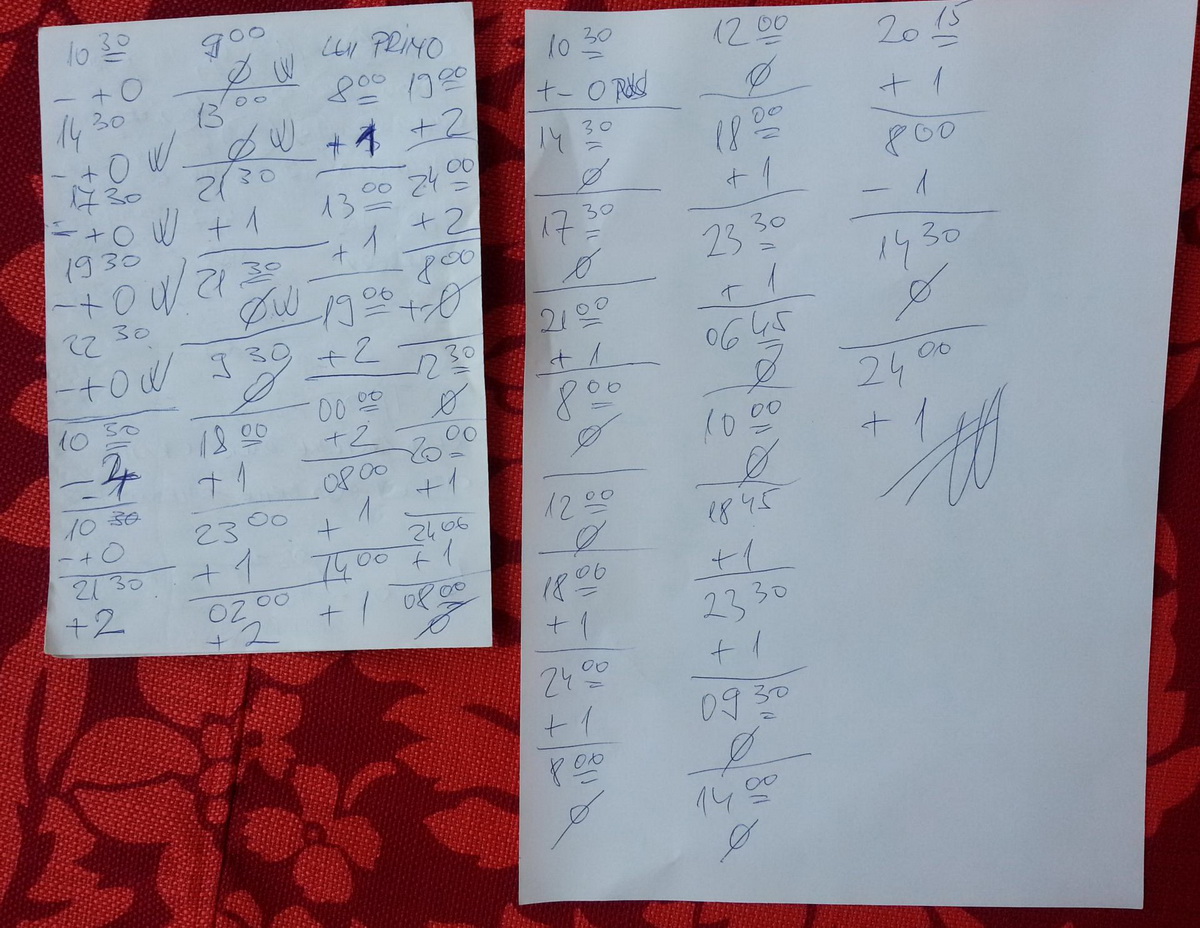 10 30
- +0
14 30
- +0 W
17 30
= +0 W
19 30
- +0 W
22 30
- +0 W
10 30
- 2
- 1
10 30
- +0
21 30
+2
9 00
Ø W
13 00
Ø W
21 30
+1
21 30
Ø W
9 30
Ø
18 00
+1
23 00
+1
02 00
+2
LUI PRIMO
8 00
+1
13 00
+1
19 00
+2
00 00
+2
08 00
+1
14 00
+1
19 00
+2
24 00
+2
8 00
+-0
12 30
Ø
20 00
+1
24 00
+1
08 00
Ø
10 30
+- 0
14 30
Ø
17 30
Ø
21 00
+1
8 00
Ø
12 00
Ø
18 00
+1
24 00
+1
8 00
Ø
12 00
Ø
18 00
+1
23 30
+1
06 45
Ø
10 00
Ø
18 45
+1
23 30
+1
09 30
Ø
14 00
Ø
20 15
+1
8 00
- 1
14 30
Ø
24 00
+1